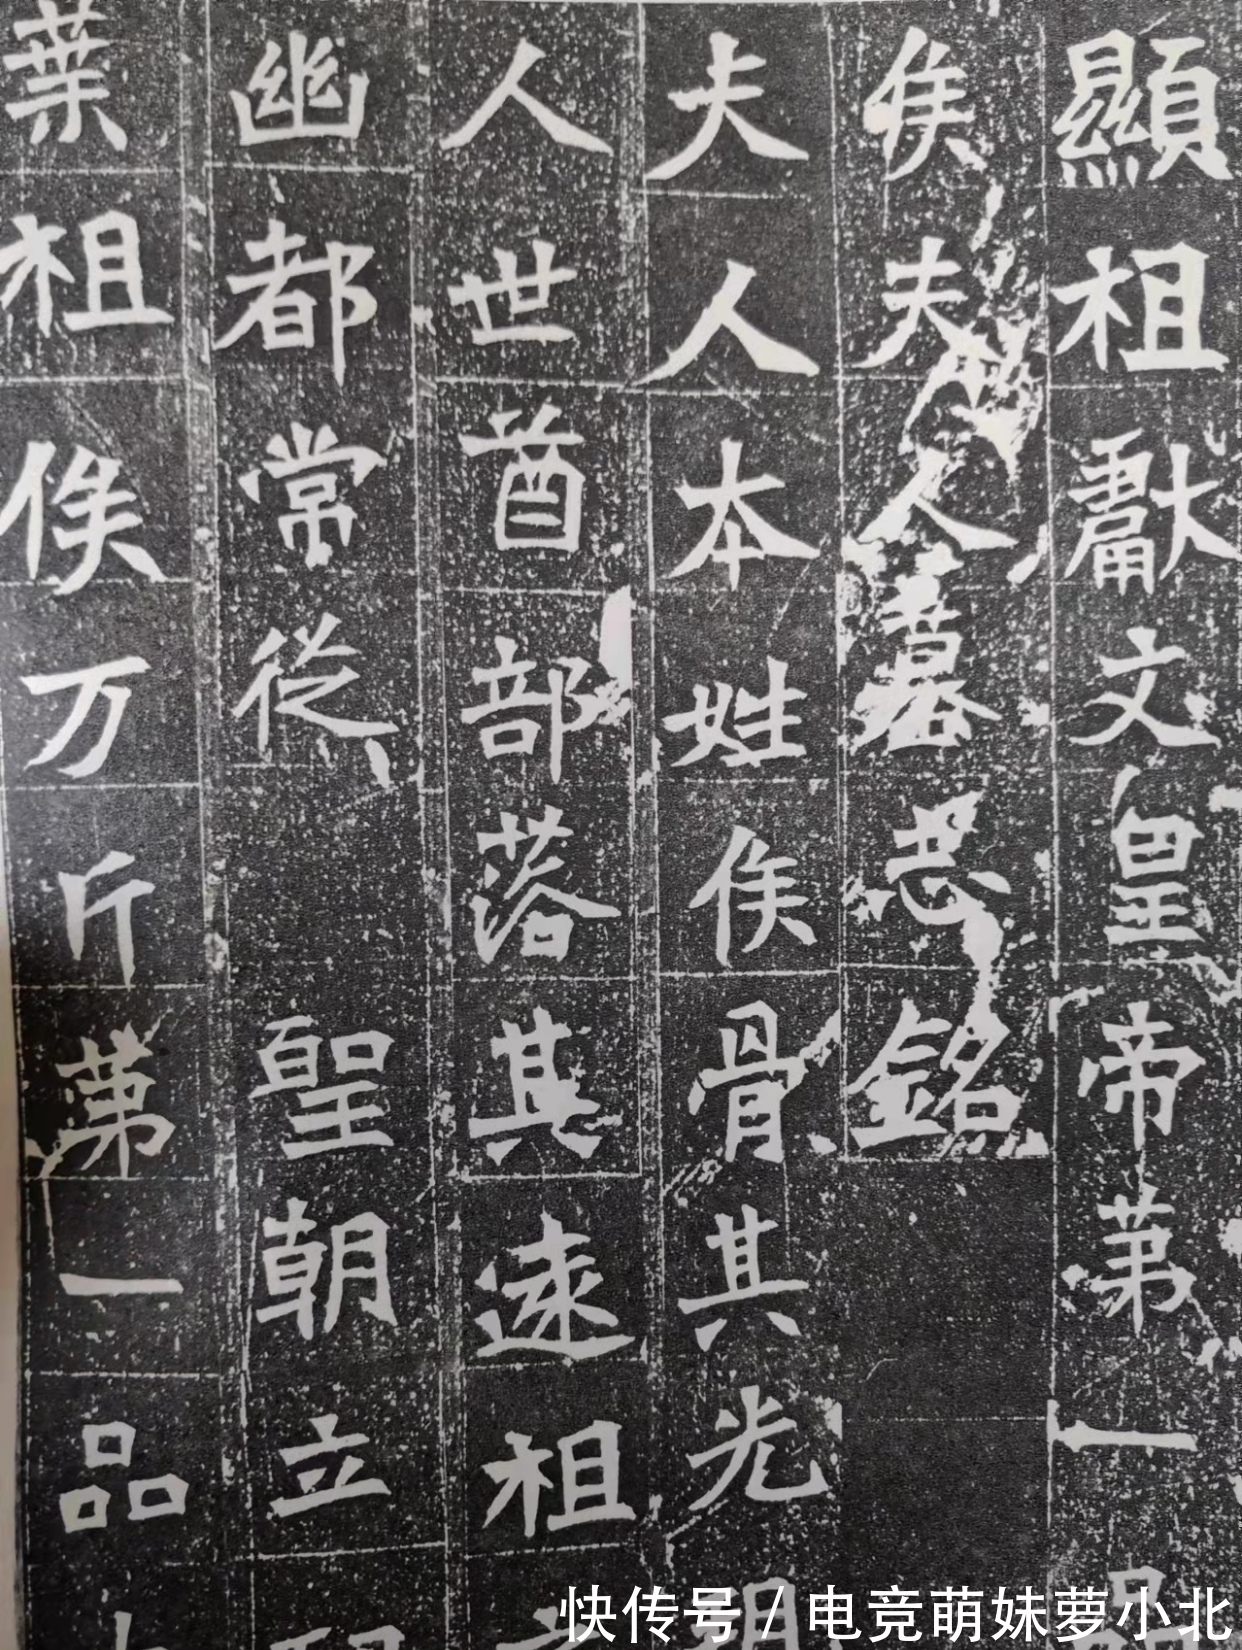 顯祖獻文皇帝第一品
侯夫人墓志銘
夫人本姓侯骨其先朔
人世酋部落其遠祖
幽都常從 聖朝立
葉祖俟万斤第一品
快传号 / 电竞萌妹萝小北